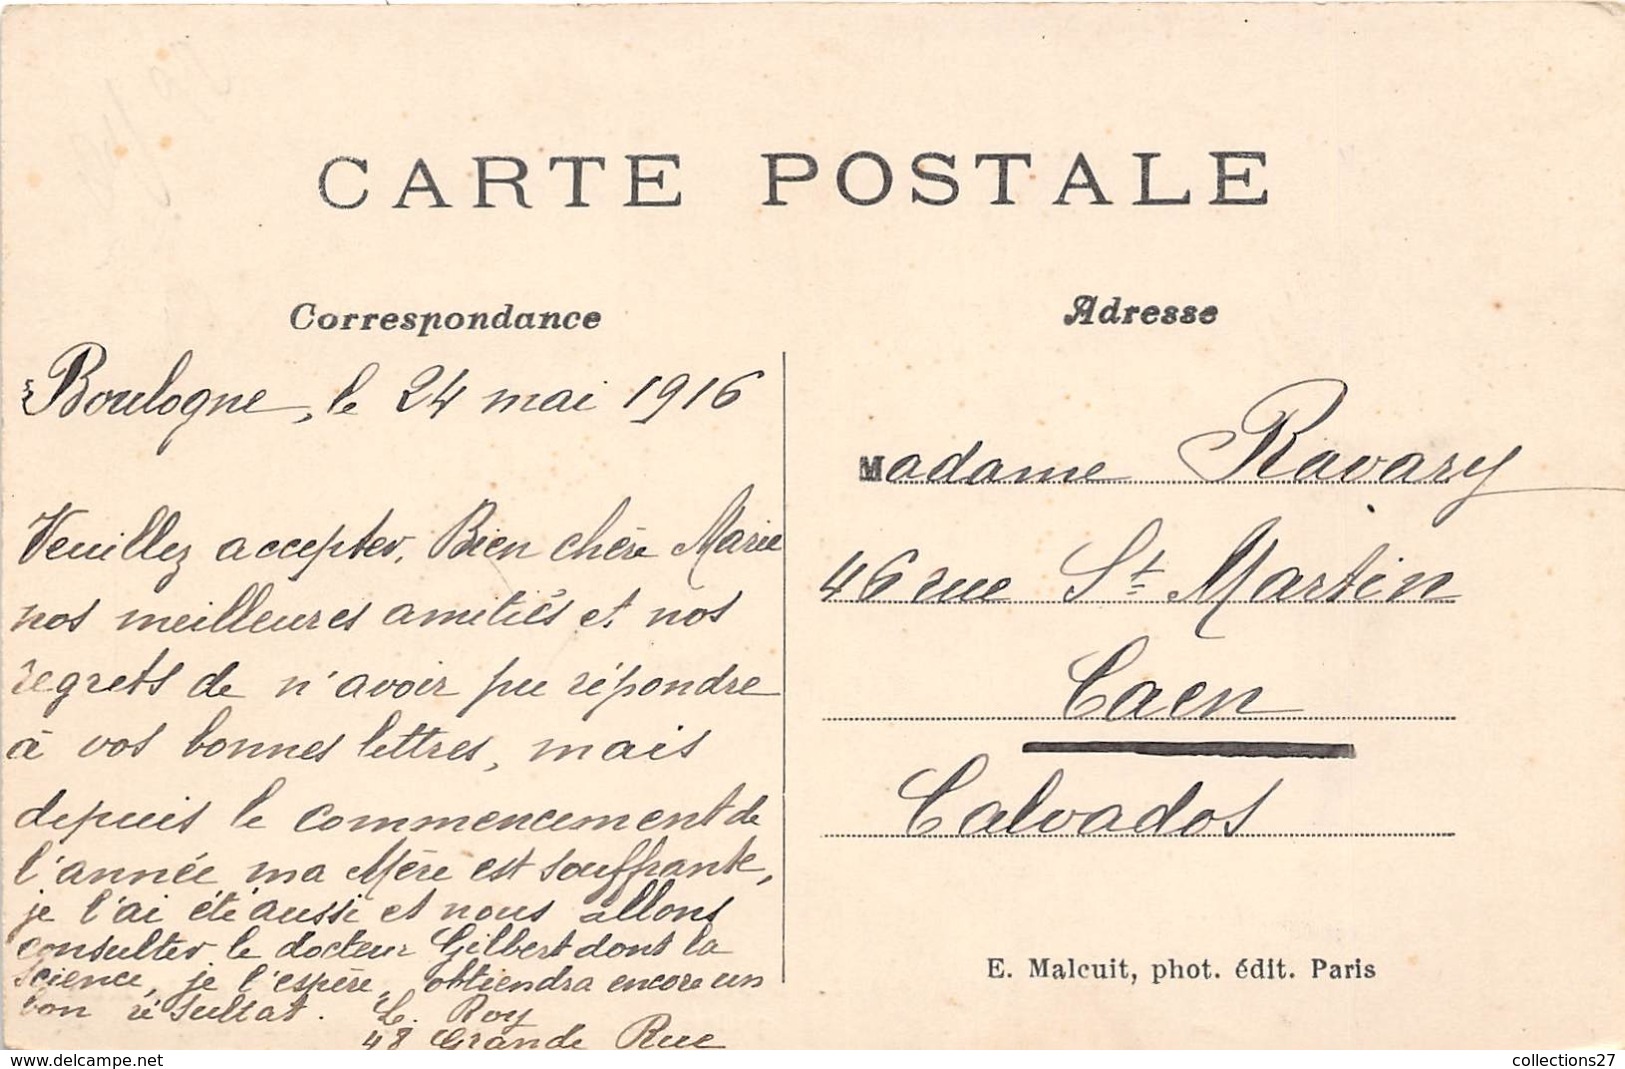 CARTE POSTALE
Correspondance
Boulogne, le 24 mai 1916
Veuillez accepter, Bien chère Marie
nos meilleures amitiés et nos
regrets de n'avoir pu répondre
à vos bonnes lettres, mais
depuis le commencement de
l'année ma Mère est souffrante,
je l'ai été aussi et nous allons
consulter le docteur Gilbert dont la
science, je l'espère, obtiendra encore un
bon résultat. L. Roy
48 Grande Rue
Adresse
Madame Ravary
46 rue St Martin
Caen
Calvados
E. Malcuit, phot. édit. Paris
delcampe.net
collections27